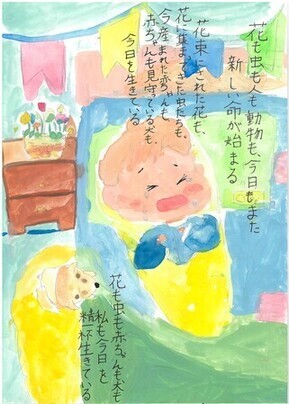 花も虫も人も動物も、今日もまた
新しい命が始まる
花束にされた花も、
花に集まってきた虫たちも
今産まれた赤ちゃんも
赤ちゃんも見守っている犬も、
今日を生きている
花も虫も赤ちゃんも犬も
私も今日を
精一杯生きている